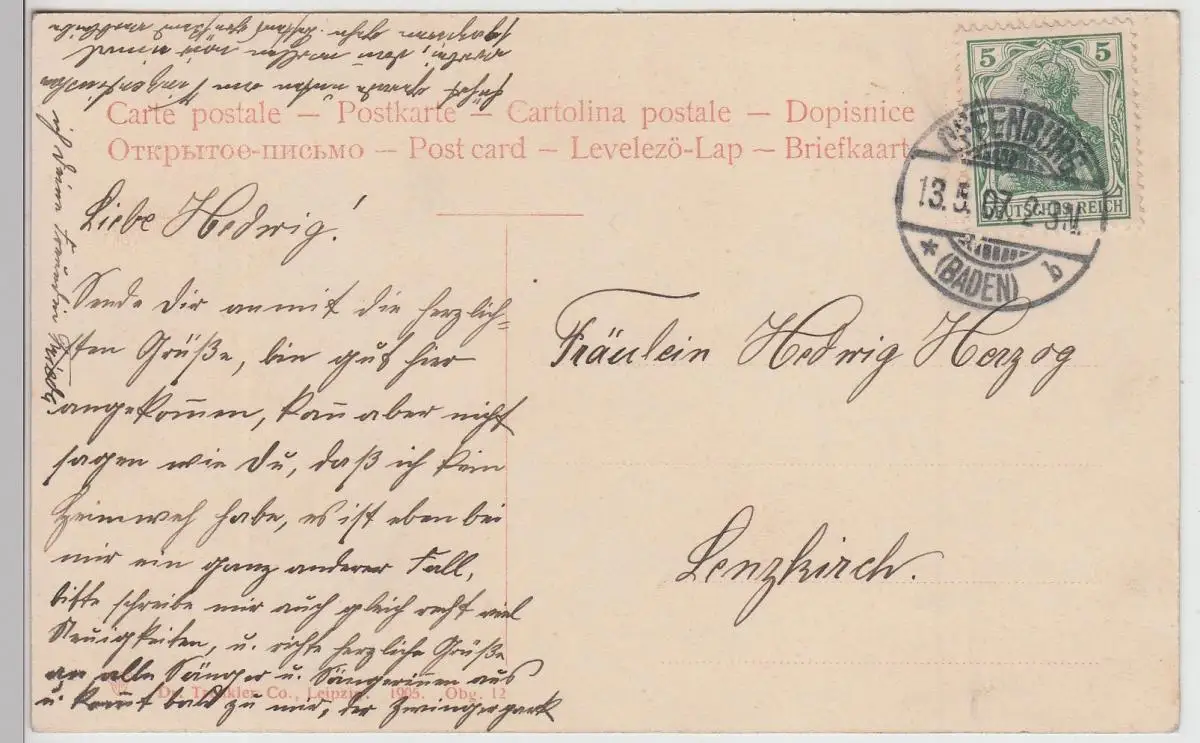 Carte postale — Postkarte — Cartolina postale — Dopisnice
Открытое-письмо — Post card — Levelező-Lap — Briefkaart
5 5
DEUTSCHES REICH
OFFENBURG
13.5.07. 2-3N.
* (BADEN) b
Liebe Hedwig!
Sende Dir anmit die herzlich=
sten Grüße, bin gut hier
angekom̅en, kan̅ aber nicht
sagen wie Du, daß ich kein
Heimweh habe, es ist eben bei
mir ein ganz anderer Fall,
bitte schreibe mir auch gleich recht viel
Neuigkeiten, u. richte herzliche Grüße
an alle Sänger u. Sängerin̅en aus
u. kom̅t bald zu mir, der Zwingerpark
ich Deine
Fräulein Hedwig Herzog
Lenzkirch.
Dr. Trenkler Co., Leipzig. 1905. Obg. 12